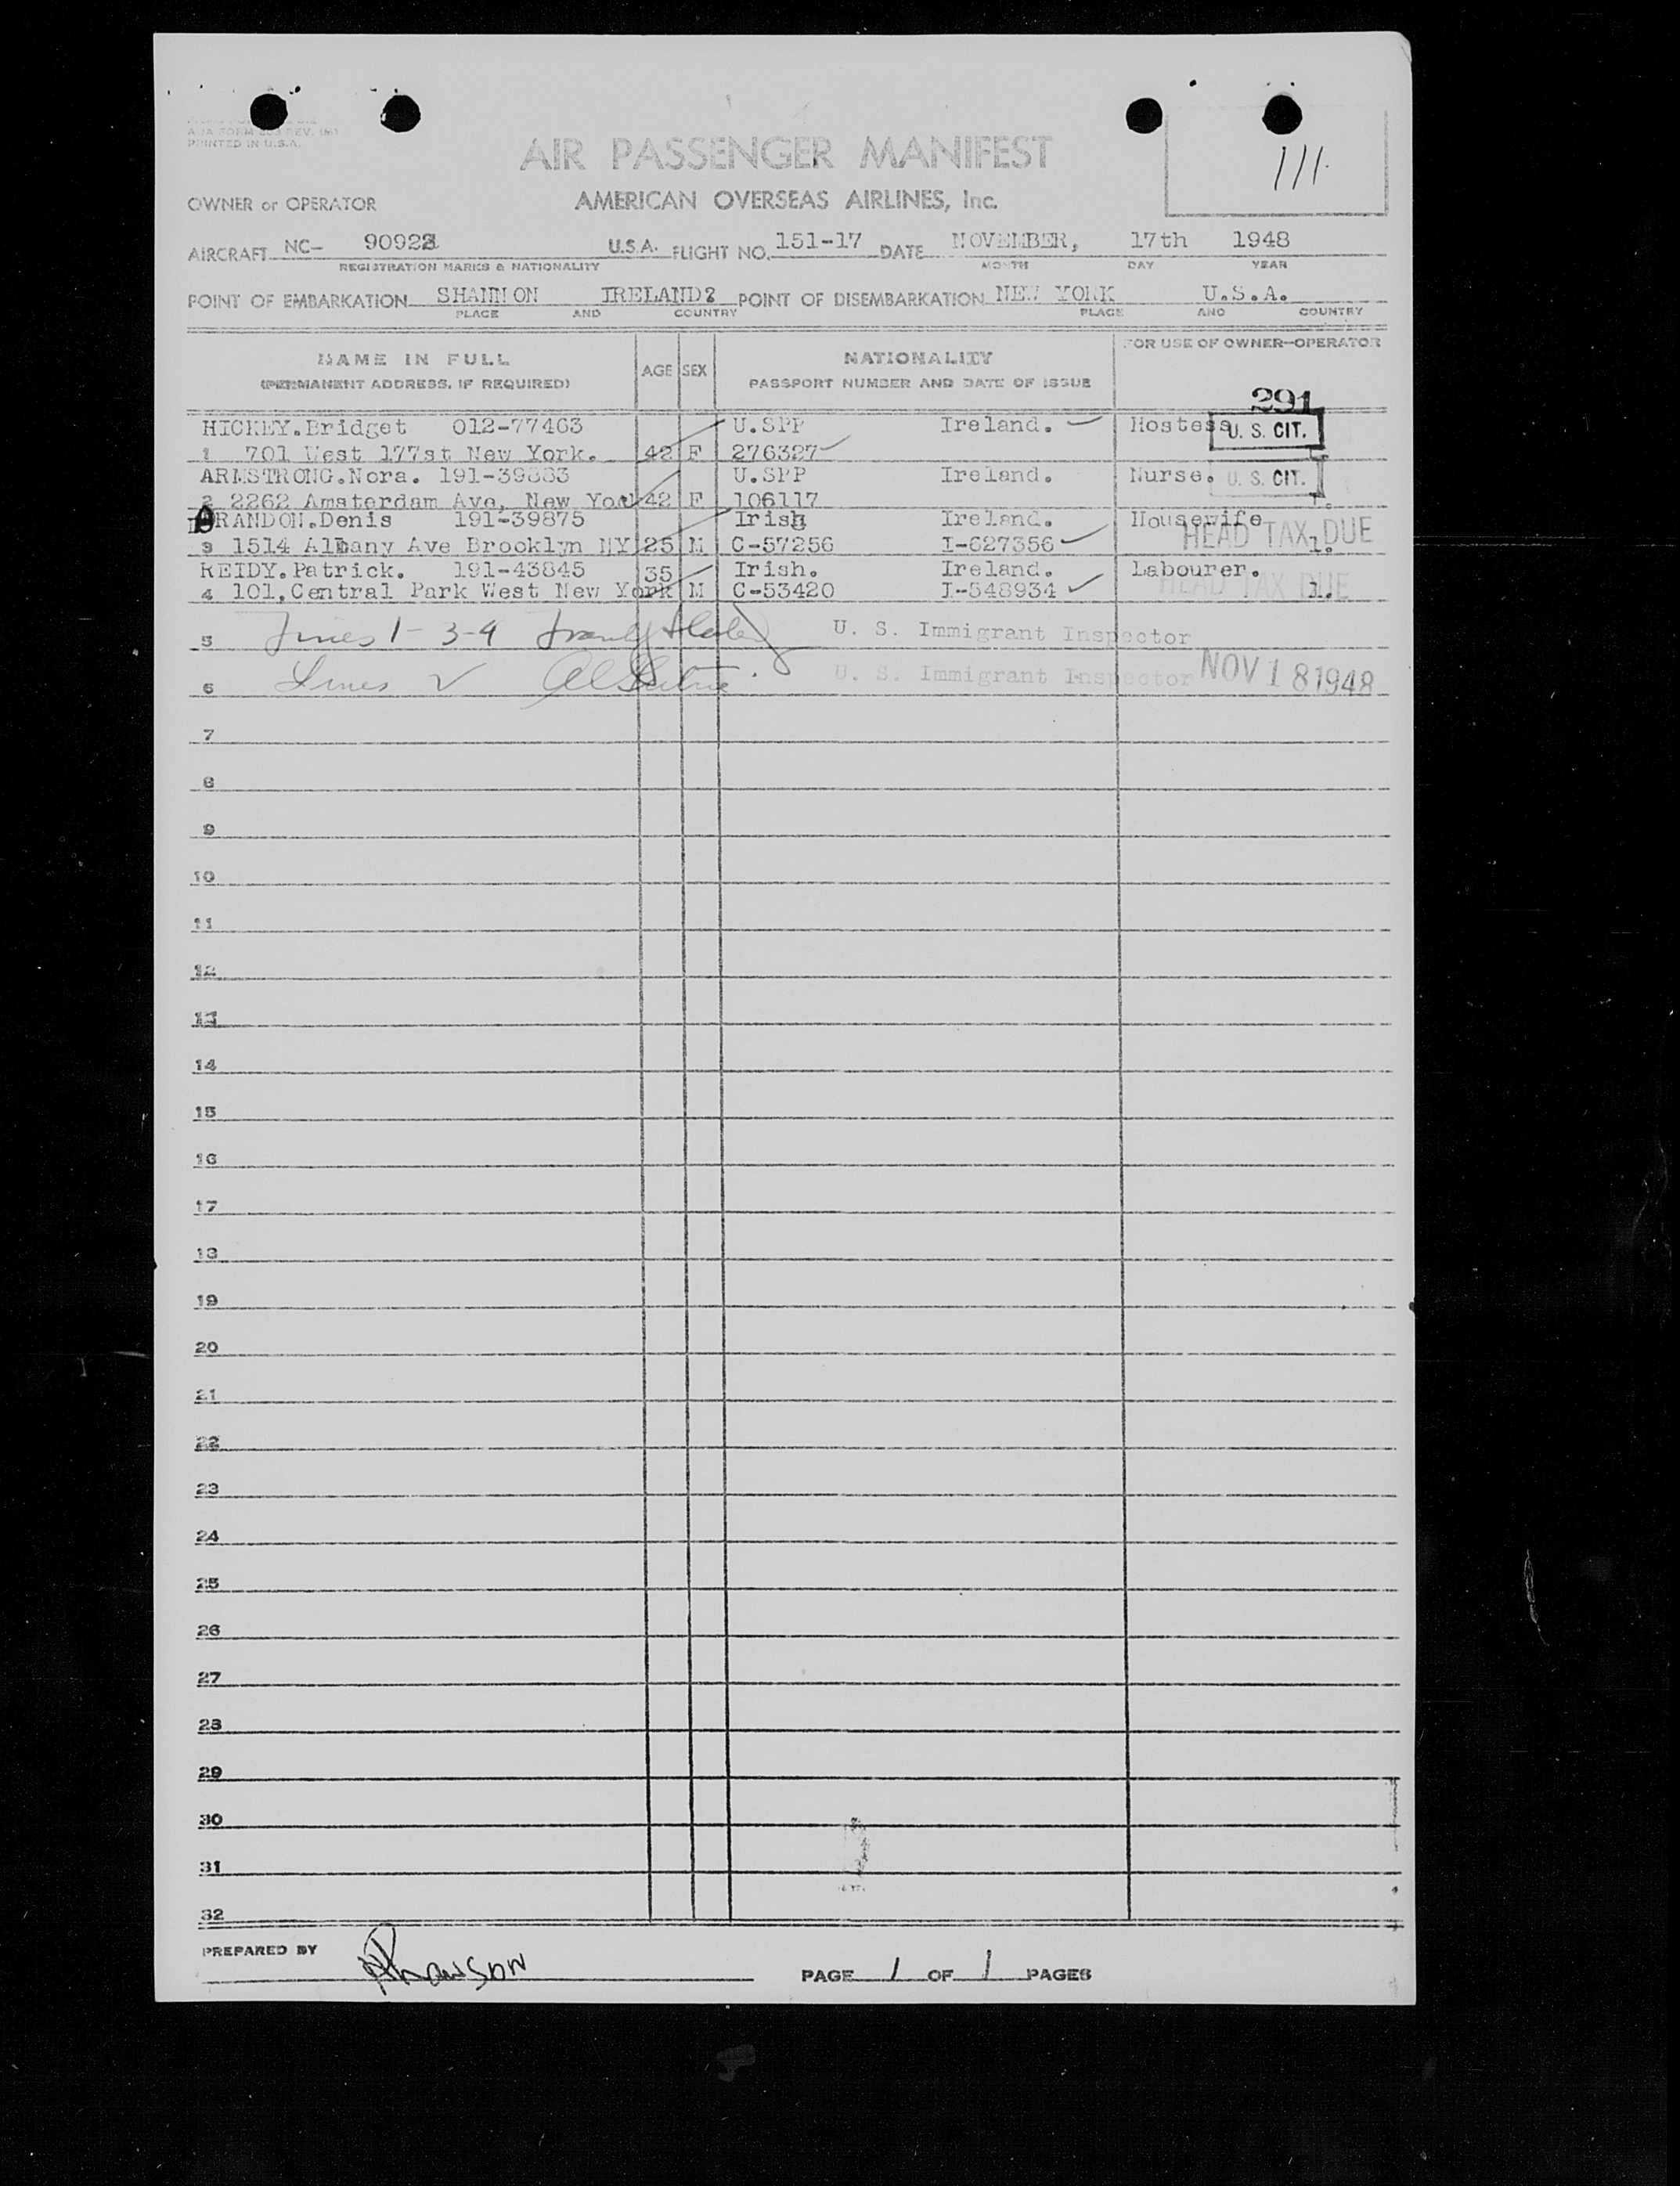 PRINTED IN U.S.A.
111.
AIR PASSENGER MANIFEST
OWNER or OPERATOR AMERICAN OVERSEAS AIRLINES, Inc.
AIRCRAFT NC- U.S.A. FLIGHT NO. 151-17 DATE NOVEMBER, 17th 1948
REGISTRATION MARKS & NATIONALITY MONTH DAY YEAR
POINT OF EMBARKATION SHANNON IRELAND POINT OF DISEMBARKATION NEW YORK U.S.A.
PLACE AND COUNTRY PLACE AND COUNTRY
NAME IN FULL AGE SEX NATIONALITY FOR USE OF OWNER-OPERATOR
(PERMANENT ADDRESS, IF REQUIRED) PASSPORT NUMBER AND DATE OF ISSUE
291
HICKEY.Bridget 012-77463 U.SPP Ireland. Hostess U. S. CIT.
1 701 West 177st New York. 42 F 276327 1.
ARMSTRONG.Nora. 191-39883 U.SPP Ireland. Nurse. U. S. CIT.
2 2262 Amsterdam Ave, New York 42 F 106117 1.
BRANDON.Denis 191-39875 Irish Ireland. Housewife
3 1514 Albany Ave Brooklyn NY 25 M C-57256 I-627356 HEAD TAX DUE 1.
REIDY.Patrick. 191-43845 35 Irish. Ireland. Labourer.
4 101,Central Park West New York M C-53420 I-548934 HEAD TAX DUE 1.
5 Lines 1-3-4 U. S. Immigrant Inspector
6 Lines 2 U. S. Immigrant Inspector NOV 18 1948
7
8
9
10
11
12
13
14
15
16
17
18
19
20
21
22
23
24
25
26
27
28
29
30
31
32
PREPARED BY
PAGE 1 OF 1 PAGES